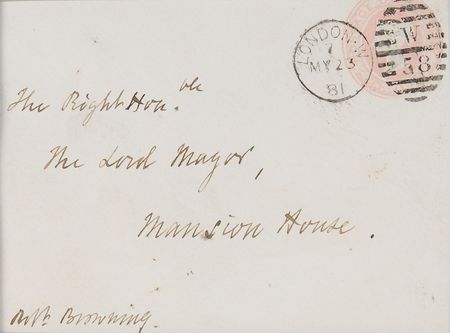 LONDON · W
7
MY 23
81
W
58
The Right Hon.ble
The Lord Mayor,
Mansion House.
Robt. Browning.